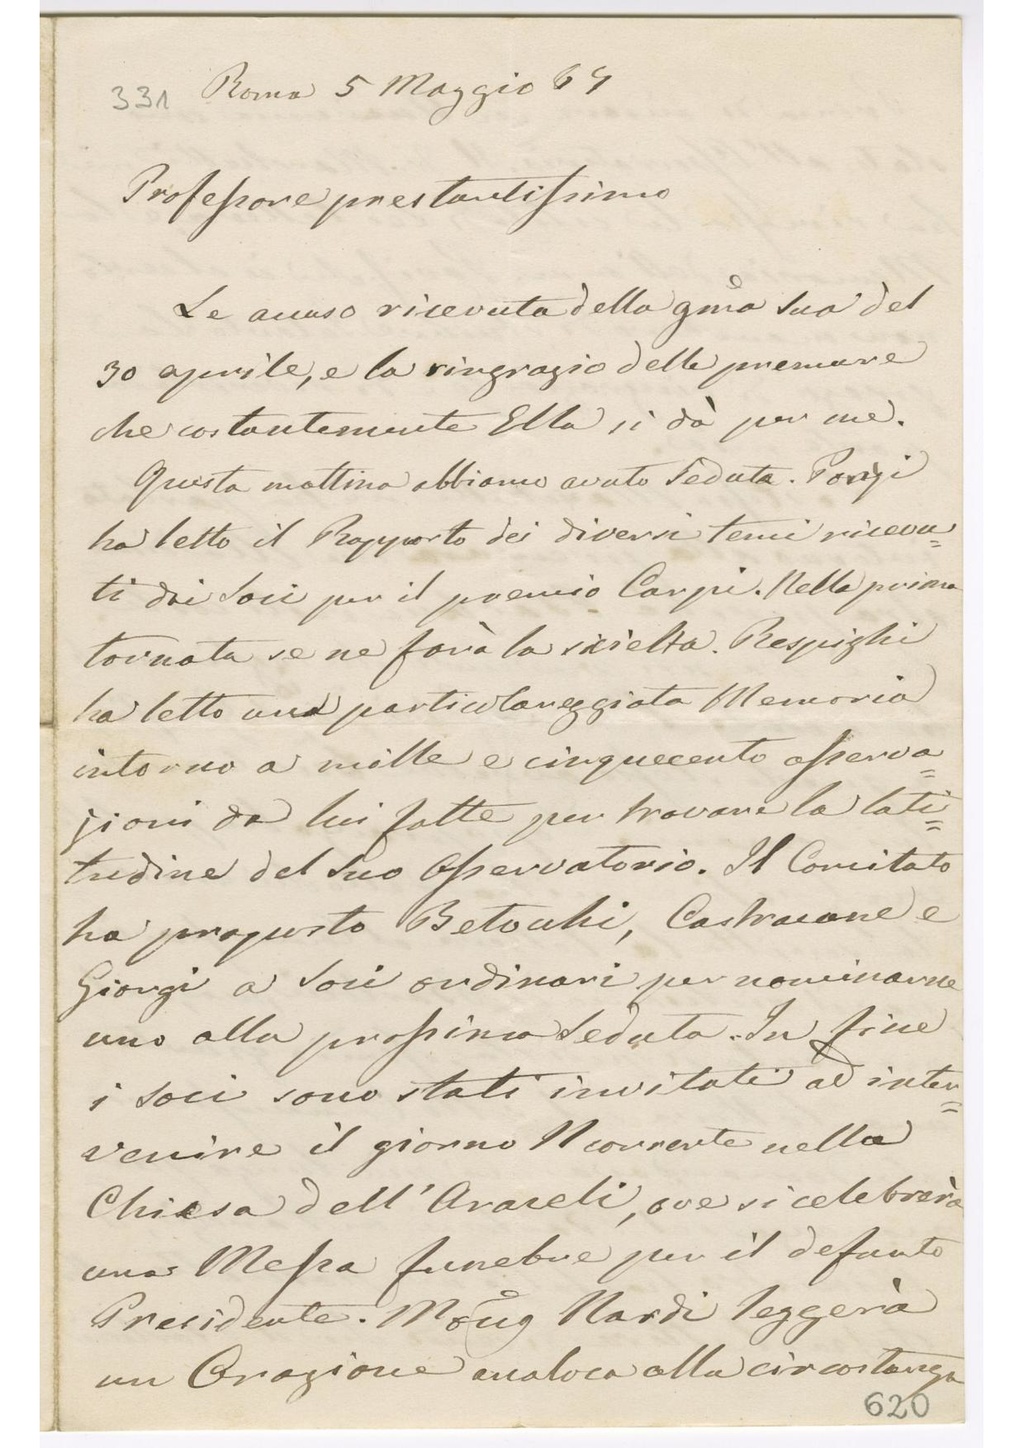 331 Roma 5 Maggio 67
Professore prestantissimo
Le accuso ricevuta della gma Sua del
30 aprile, e la ringrazio delle premure
che costantemente Ella si dà per me.
Questa mattina abbiamo avuto Seduta. Ponzi
ha letto il Rapporto dei diversi temi ricevu=
ti dai Soci per il premio Carpi. Nella prima
tornata se ne farà la scielta. Respighi
ha letto una particolareggiata Memoria
intorno a mille e cinquecento osserva=
zioni da lui fatte per trovare la lati=
tudine del Suo Osservatorio. Il Comitato
ha proposto Betocchi, Castracane e
Giorgi a Soci ordinari per nominarne
uno alla prossima Seduta. In fine
i Soci sono stati invitati ad inter=
venire il giorno 11 corrente nella
Chiesa dell'Araceli, ove si celebrerà
una Messa funebre per il defunto
Presidente. Monsig Nardi leggerà
un Orazione analoca alla circostanza
620